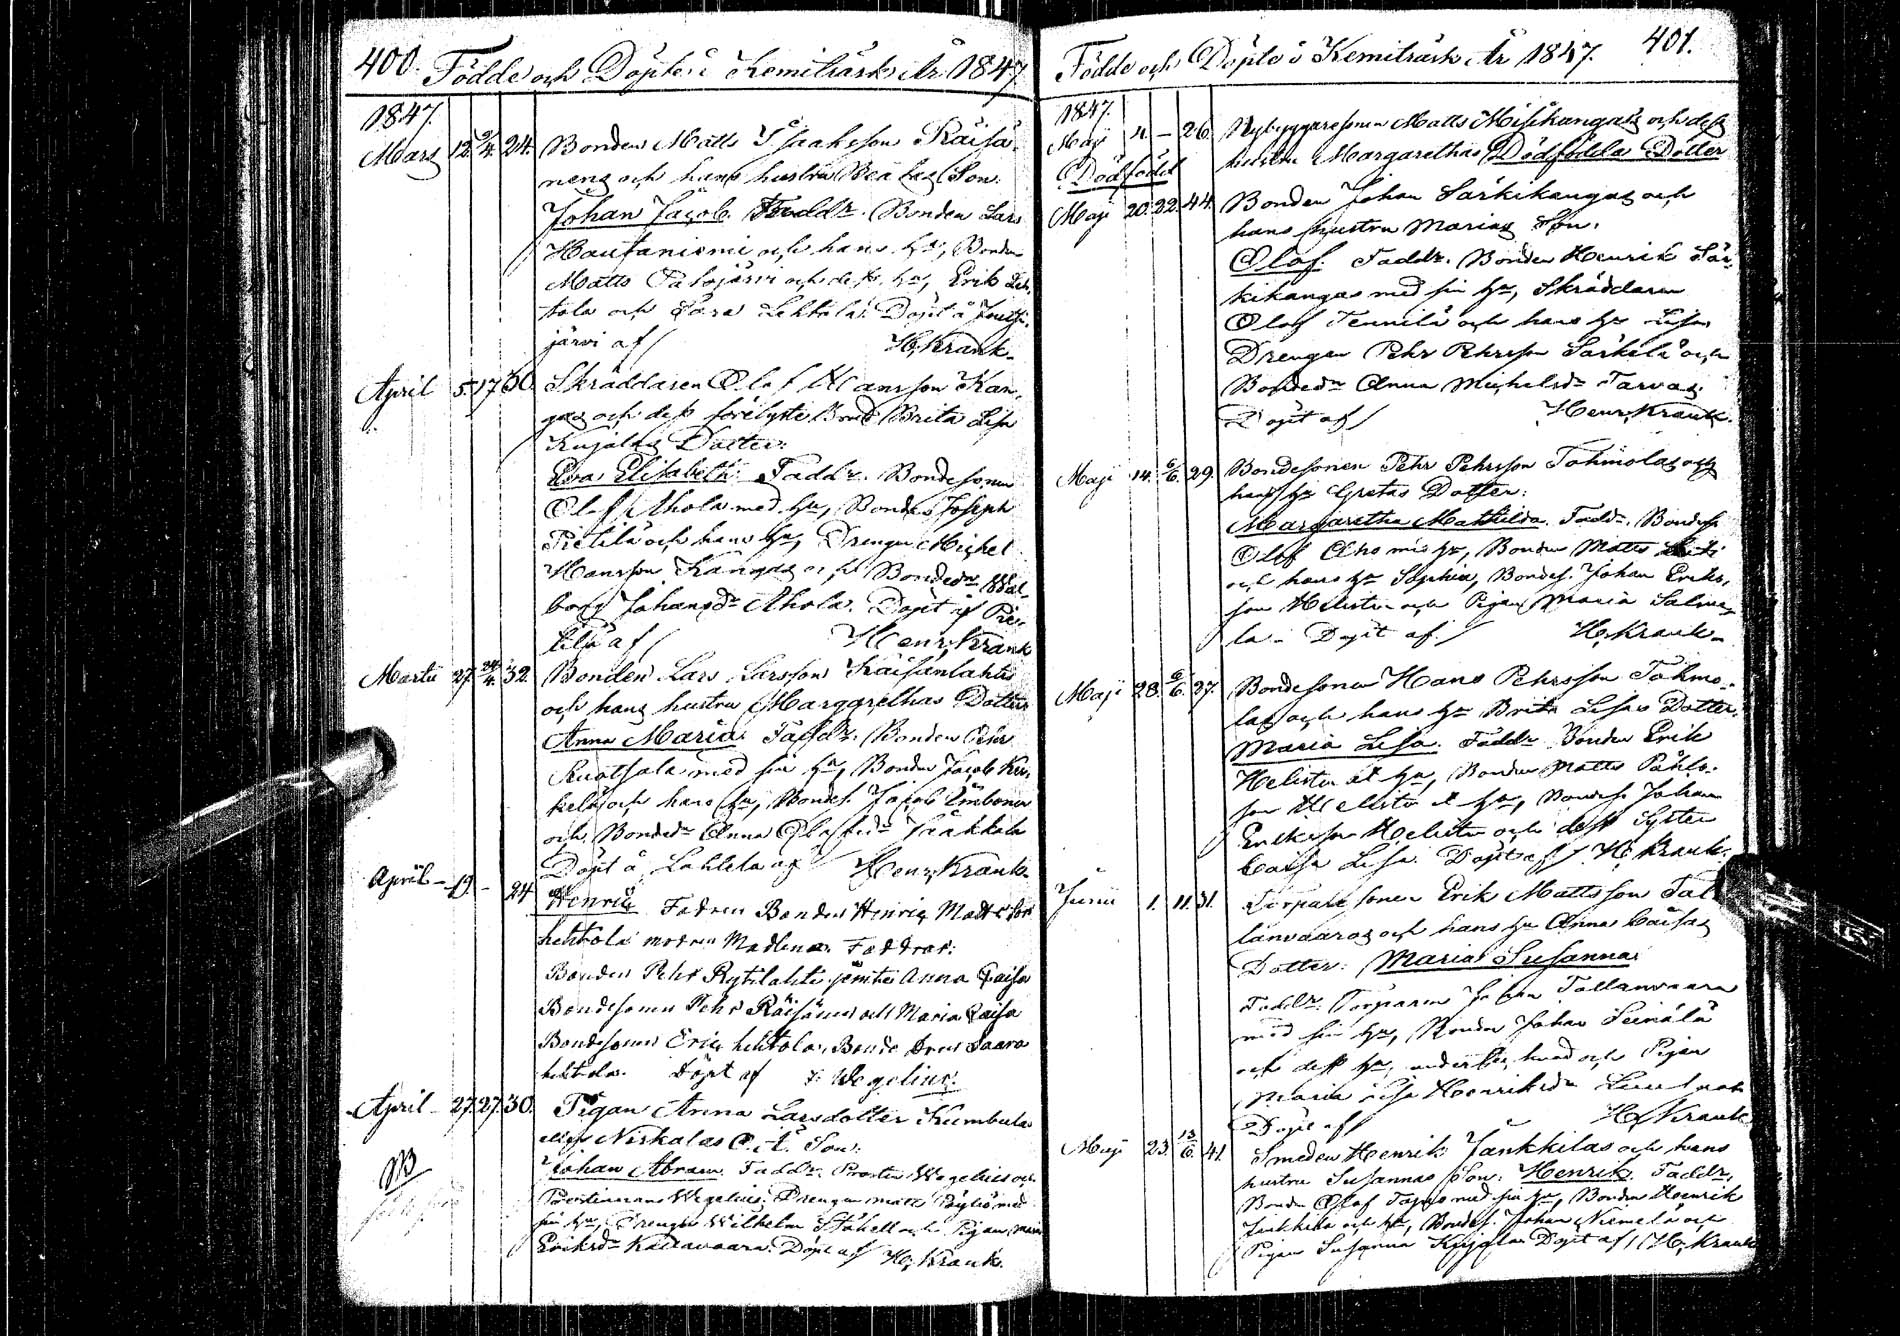 400. Födde och Döpte i Kemiträsk År 1847
1847.
Mars 12. 9/4. 24. Bonden Matts Isaaksson Räisä-
nens och hans hustru Beatas Son:
Johan Jacob. Faddr. Bonden Lars
Hautaniemi och hans hu, Bonden
Matts Palojärvi och dess hu, Erik Leh-
tola och Sara Lehtola. Döpt å Joutsi-
järvi af H. Krank.
April 5. 17. 30. Skräddaren Olof Hansson Kan-
gas och dess förelyste Brud Brita Lisa
Kujalas Dotter:
Eva Elisabeth. Faddr. Bondesonen
Olof Ahola med hu, Bonden Joseph
Pietilä och hans hu, Drengen Michel
Hansson Kangas och Bondedr Wal-
borg Johansdr Ahola. Döpt af Pie-
tilä af Henr. Krank
Martii 27. 24/4. 32. Bonden Lars Larsson Räisänlahtis
och hans hustru Margarethas Dotter
Anna Maria. Faddr. Bonden Pehr
Ruotsala med sin hu, Bonden Jacob Ker-
kelä och hans hu, Bondes. Jacob Imbonen
och Bondedr Anna Olofsdr Jaakkola
Döpt å Lahtela af Henr. Krank.
April - 19 - 24 Henric Fadren Bonden Henric Matts Son
Lehtola modren Madlena. Faddrar:
Bonden Pehr Kytilahti jemte Anna Caisa
Bondesonen Pehr Räisänen och Maria Caisa
Bondesonen Eric Lehtola, Bonde Dren Saara
Lehtola. Döpt af J. Wegelius.
April - 27. 27. 30. Pigan Anna Larsdotter Kumbula
eller Niskalas O. Ä. Son:
Johan Abram. Faddr. Prosten Wegelius och
Prostinnan Wegelius. Drengen Matts Pöyliö med
sin hu, Drengen Wilhelm Ståhell och Pigan Maria
Eriksdr Kallavaara. Döpt af H. Krank.
NB
Födde och Döpte i Kemiträsk År 1847. 401.
1847.
Maji 4. - 26. Nybyggaresonen Matts Misikangas och dess
hustru Margarethas Dödfödda Dotter
Dödfödd
Maji 20. 22. 44. Bonden Johan Särkikangas och
hans hustru Marias Son.
Olof. Faddr. Bonden Henrik Sär-
kikangas med sin hu, Skräddaren
Olof Tennilä och hans hu Lisa
Drengen Pehr Pehrsson Särkelä och
Bondedr Anna Michelsdr Tarvas.
Döpt af Henr. Krank.
Maji 14. 6/6. 29. Bondesonen Pehr Pehrsson Tohmolas och
hans hu Gretas Dotter:
Margaretha Mathilda. Faddr. Bondes.
Olof Aho med hu, Bonden Matts
och hans hu Sophia, Bondes. Johan Eriks-
son Helistén och Pigan Maria Salme-
la. Döpt af H. Krank.
Maji 28. 6/6. 27. Bondesonen Hans Pehrsson Tohmo-
las och hans hu Brita Lisas Dotter.
Maria Lisa. Faddr Bonden Erik
Helisten et hu, Bonden Matts Påhls-
son Helisten et hu, Bondes. Johan
Eriksson Helisten och dess Syster
Caisa Lisa. Döpt af H. Krank.
Junii 1. 11. 31. Torparesonen Erik Mattsson Tal-
lanvaaras och hans hu Anna Caisas
Dotter: Maria Susanna.
Faddr. Torparen Johan Tallanvaara
med sin hu, Bonden Johan Leinälä
och dess hu, och Pigan
Maria Lisa Henriksdr
Döpt af H. Krank
Maji 23. 13/6. 41. Smeden Henrik Jankkilas och hans
hustru Susannas Son: Henrik. Faddr.
Bonden Olof Tapio med sin hu, Bonden Henrik
Jankkila och hu, Bondes. Johan Niemelä och
Pigan Susanna Kujala. Döpt af H. Krank